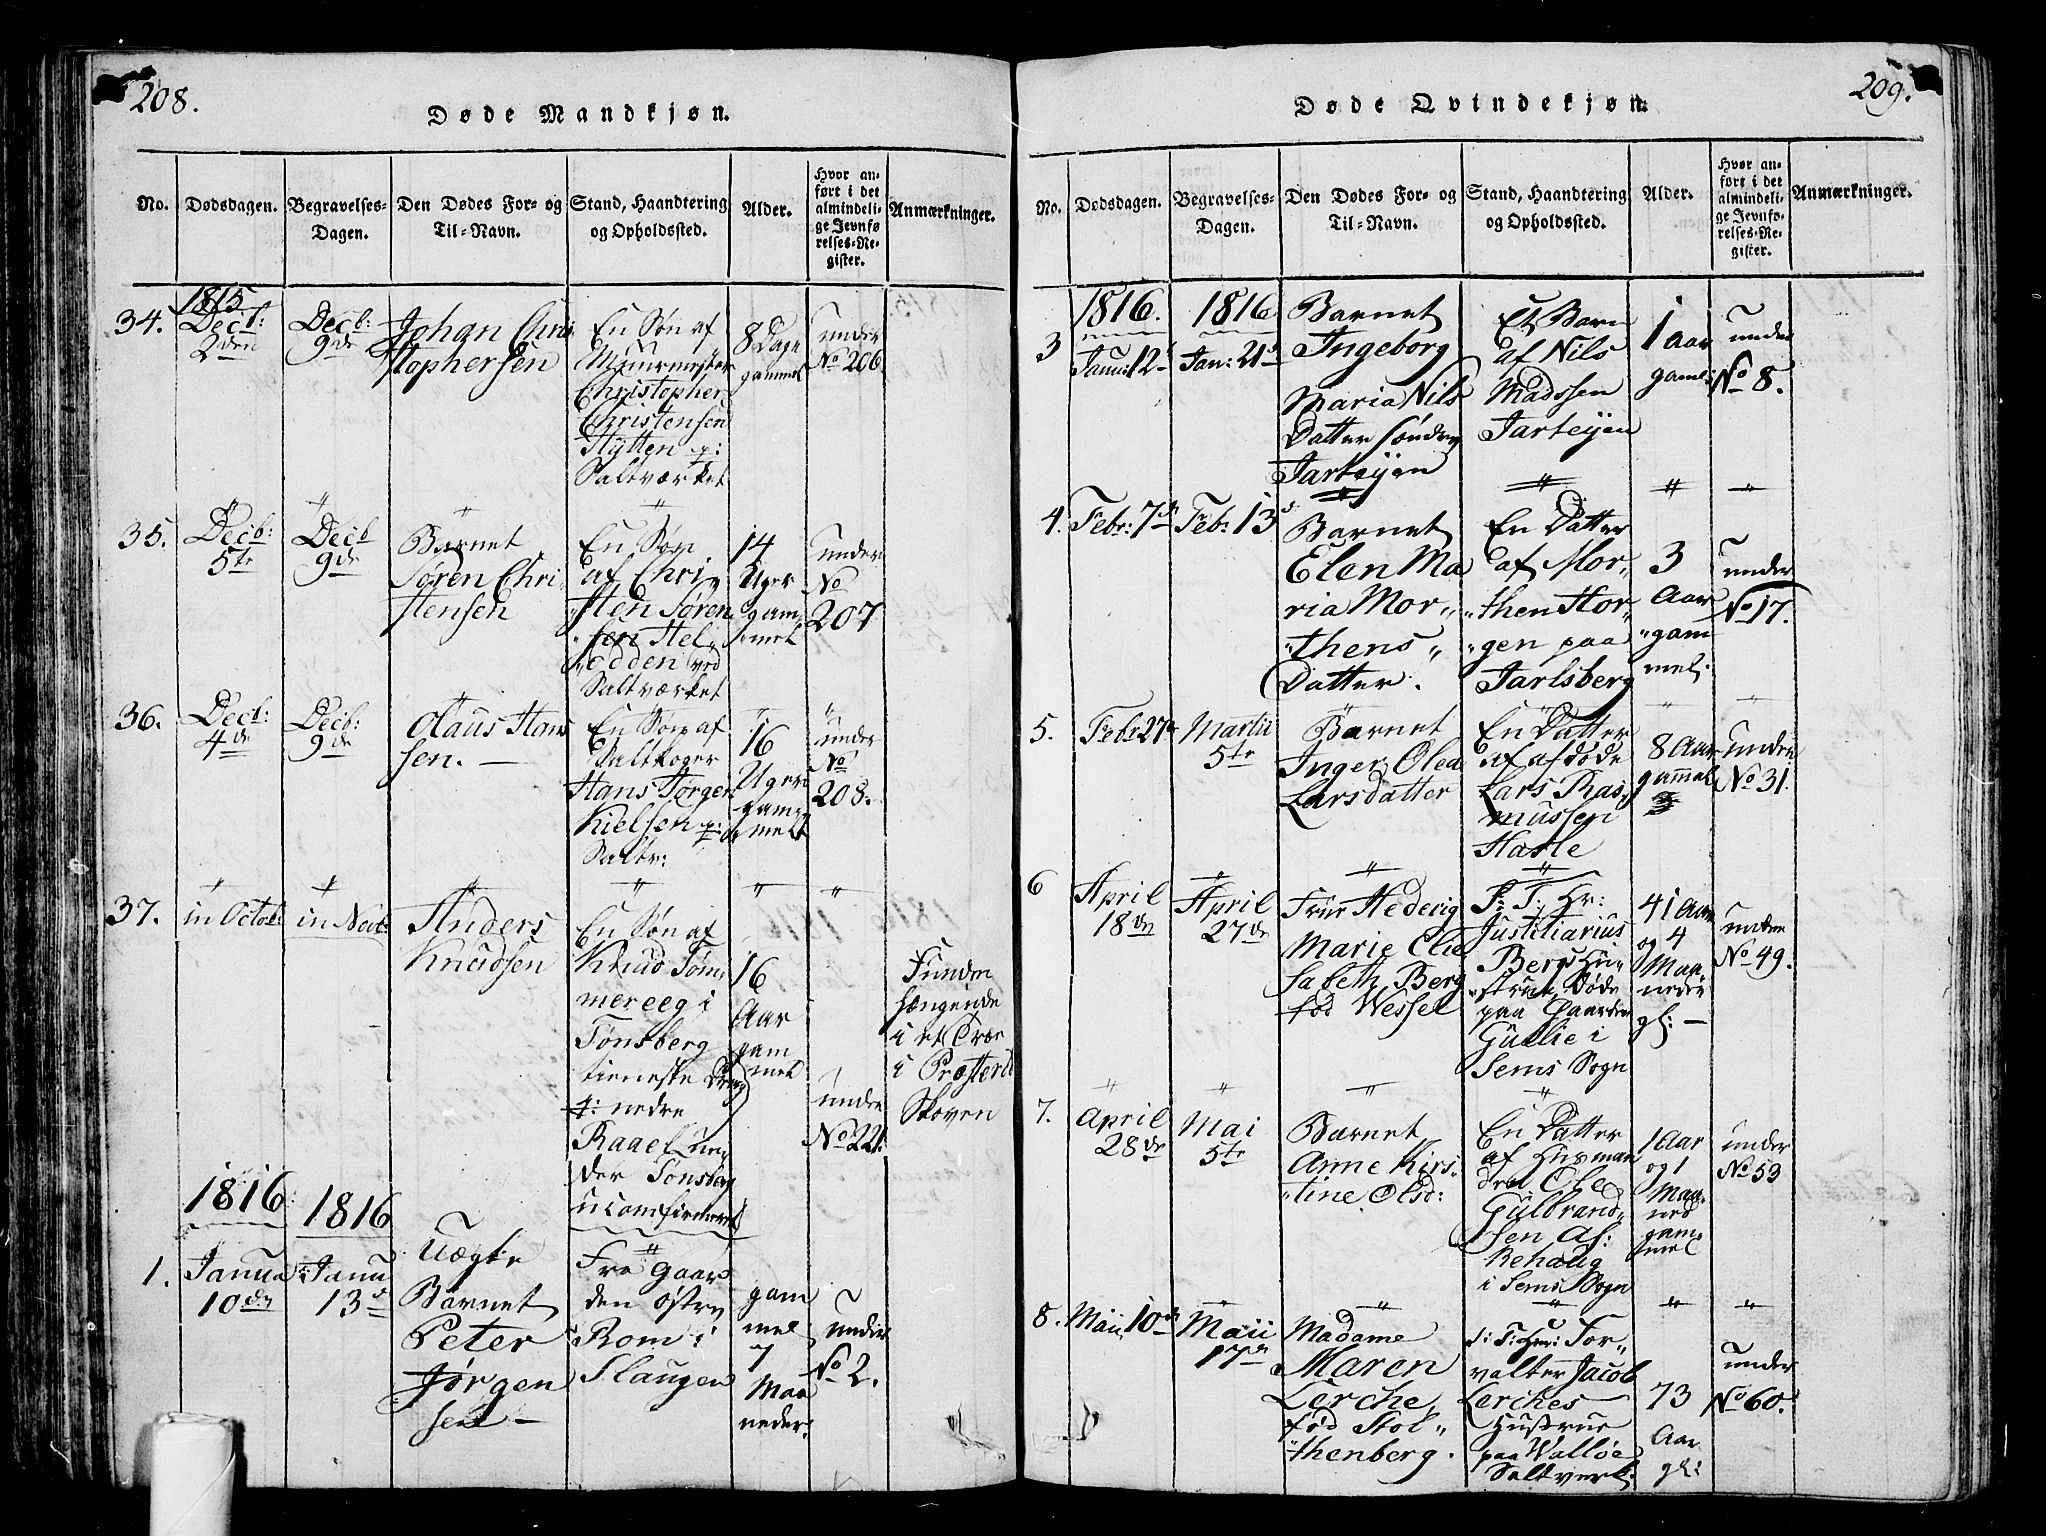 208.
Døde Mandkjøn.
No.
Dødsdagen.
Begravelses-
Dagen.
Den Dødes For- og
Til-Navn.
Stand, Haandtering
og Opholdssted.
Alder.
Hvor an-
ført i det
almindeli-
ge Jevnfø-
relses-Re-
gister.
Anmærkninger.
1815.
34.
Decb:
2den
Decb:
9de
Johan Chri
stophersen
En Søn af
Muurmester
Christopher
Christensen
Hytten p:
Saltværket
8 Dage
gammel
under
No 206
35.
Decb:
5te
Decb
9de
Barnet
Søren Chri
stensen
En Søn
af Chri„
„sten Søren
„sen Hel„
„odden ved
Saltværket
14
Uger
gam
„mel
under
No
207
36.
Decb:
4de
Decb:
9de
Olaus Hans
sen. —
En Søn af
Saltkoger
Hans Jørgen
Nielsen p:
Saltv:
16
Uger
gam
mel
under
No
208.
37.
in Octob:
in Novb:
Anders
Knudsen
En Søn af
Knud Tøm„
mereeg i
Tønsberg
tieneste Dreng
p: nedre
Raae
der Tønsberg
uconfirmeret
16
Aar
gam
mel
under
No 221.
Funden
hængende
i et Træ
i Præsteru
Skoven
1816:
1816
1.
Janua
10de
Janu
13de
Uægte
Barnet
Peter
Jørgen
sen —
Fra Gaar
den østre
Rom i
Slaugen
gam
mel
7
Maa
neder.
under
No 2.
209.
Døde Qvindekjøn.
No.
Dødsdagen.
Begravelses-
Dagen.
Den Dødes For- og
Til-Navn.
Stand, Haandtering
og Opholdssted.
Alder.
Hvor an-
ført i det
almindeli-
ge Jevnfø-
relses-Re-
gister.
Anmærkninger.
1816.
1816
3
Janu: 12
Jan: 21
Barnet
Ingeborg
Maria Nils
Datter søndre
Jarteyen
Et Barn
af Nils
Madssen
Jarteyen
1 aar
gamel:
under
No 8.
4.
Febr: 7de
Febr 13
Barnet
Elen Ma
ria Mor„
„thens„
Datter.
En Datter
af Mor„
„then Hor„
„gen paa
Jarlsberg
3
Aar
„gam
mel:
under
No 17.
5.
Febr 27de
Martii
5te
Barnet
Inger Olea
Larsdatter
En Datter
af afdøde
Lars Ras„
mussen
Hasle
8 Aar
gammel
under
No 31.
6
April
18de
April
27de
Frue Hedevig
Marie Elie
sabeth Berg
fød Wessel
P: T. Hr:
Justitiarius
Bergs Hu„
„strue, Døde
paa Gaarden
Gullie i
Sems Sogn
41 Aar
og 4
Maa„
neder
gl: —
under
No 49.
7.
April
28de
Mai
5te
Barnet
Anne Kirs„
„tine Olsd:
En Datter
af Huusman
den Ole
Gulbrand„
„sen Af:
Rehaug
i Sems Sogn
1 Aar
og 1
Maa„
ned
gam„
mel
under
No 53
8.
Maii 10de
Maii
17de
Madame
Maren
Lerche,
fød Stol„
„thenberg.
S: T: Herr: For„
valter Jacob
Lerches
Hustrue
paa Walløe
Saltverk.
73
Aar
gl:
under
No 60.